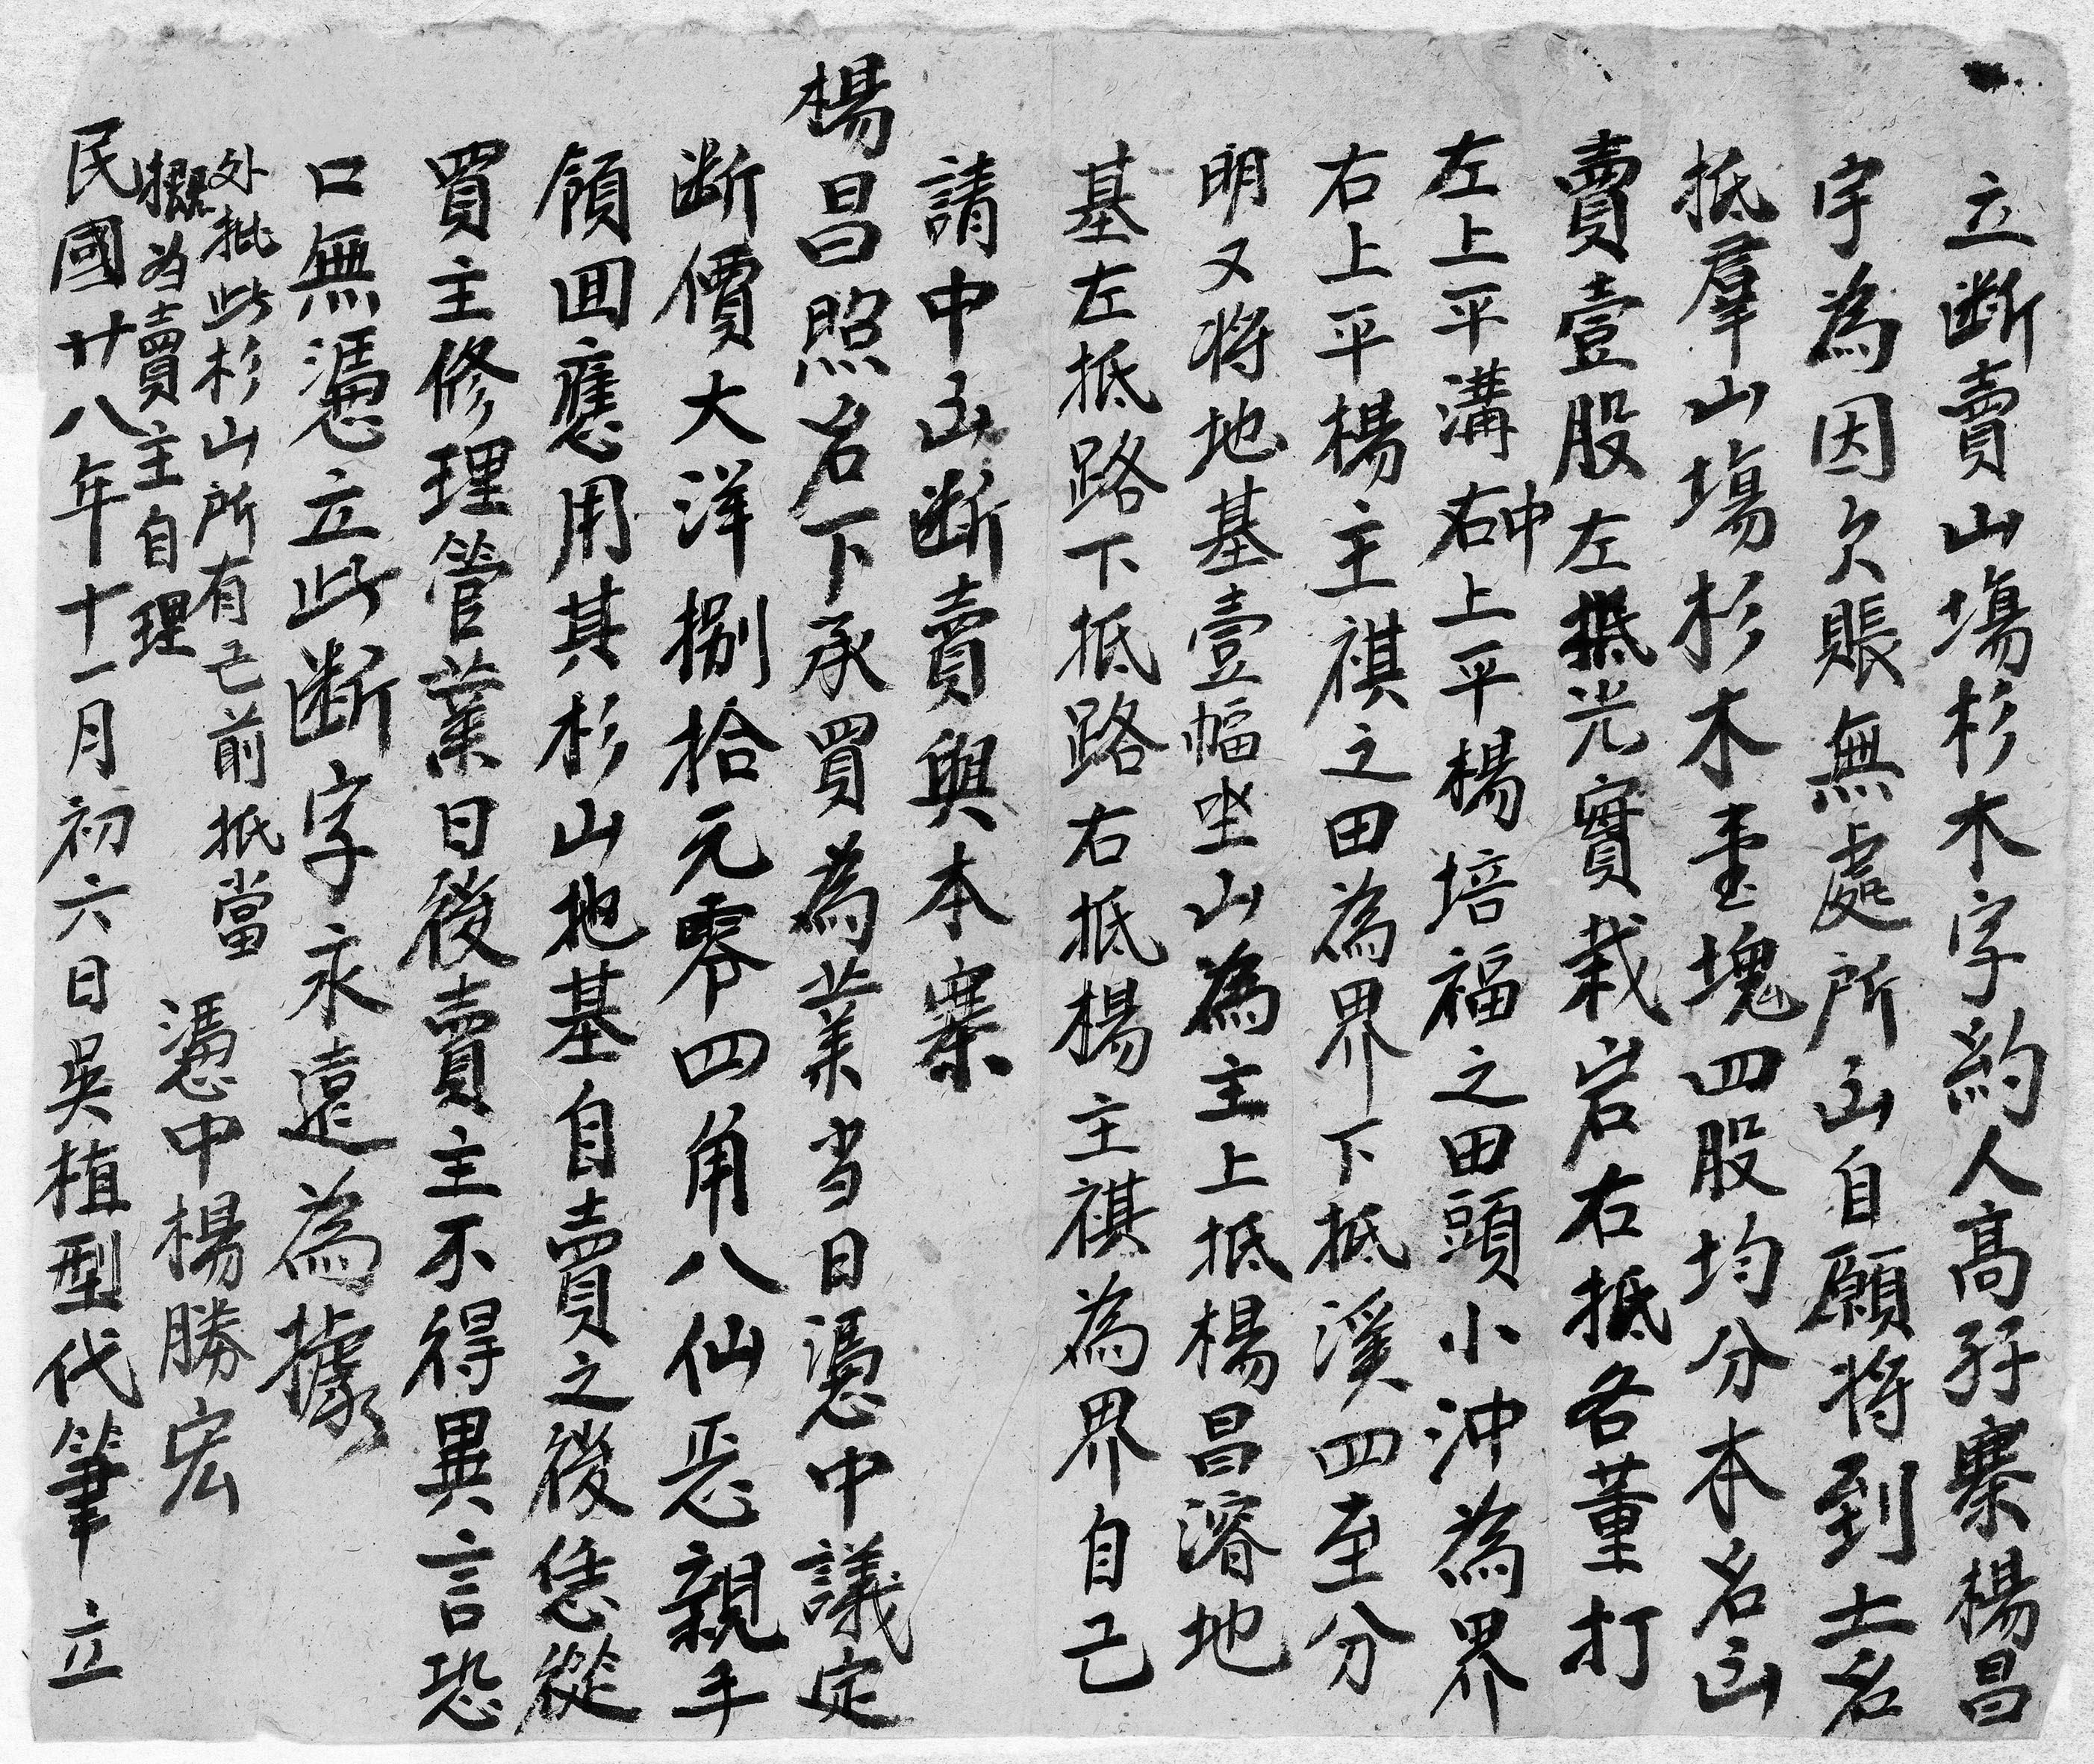 立断賣山塲杉木字約人高孖寨楊昌
宇為因欠賬無處所出自願将到土名
抵羣山塲杉木壹塊四股均分本名出
賣壹股左抵光實栽岩右抵各董打
左上平溝右冲上平楊培福之田頭小沖為界
右上平楊主祺之田為界下抵溪四至分
明又将地基壹幅坐山為主上抵楊昌濬地
基左抵路下抵路右抵楊主祺為界自己
請中出断賣與本寨
楊昌照名下承買為業当日憑中議定
断價大洋捌拾元零四角八仙正親手
領回應用其杉山地基自賣之後恁從
買主修理管業日後賣主不得異言恐
口無憑立此断字永遠為據
外批此杉山所有已前抵當
概為賣主自理
憑中楊勝宏
民國廿八年十一月初六日吳植型代筆 立